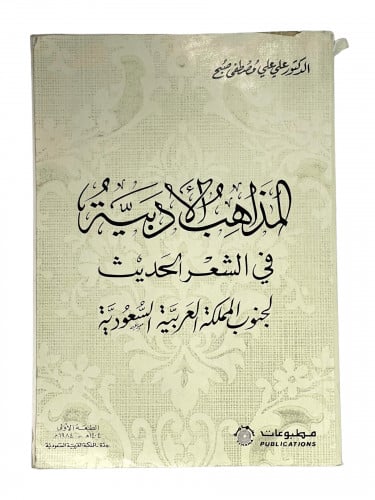 الدكتور علي علي مصطفى صبح
المذاهب الأدبيّة
في الشعر الحديث
لجنوب المملكة العربية السّعوديّة
الطبعة الأولى
١٤٠٤هـ - ١٩٨٤م
جدة - المملكة العربية السعودية
مطبوعات
PUBLICATIONS